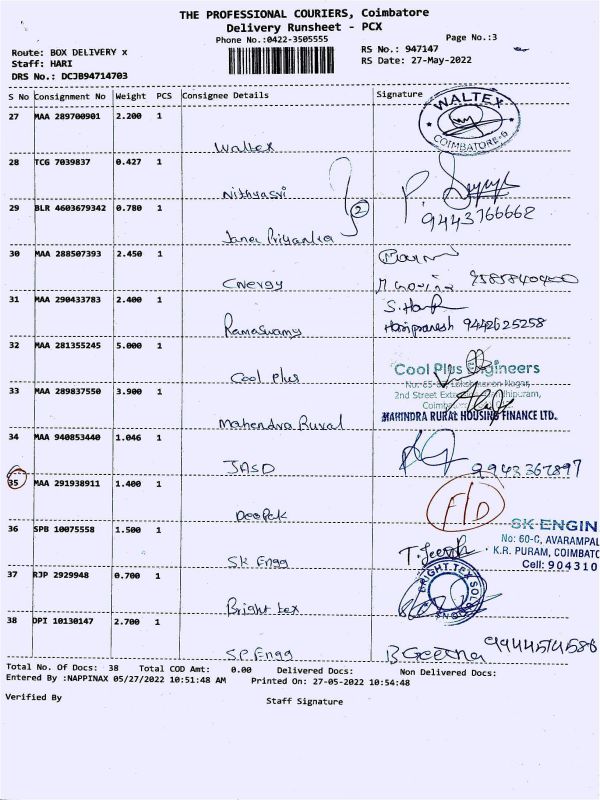 THE PROFESSIONAL COURIERS, Coimbatore
Delivery Runsheet - PCX
Phone No.:0422-3505555
Page No.:3
Route: BOX DELIVERY x
RS No.: 947147
Staff: HARI
RS Date: 27-May-2022
DRS No.: DCJB94714703
S No Consignment No Weight PCS Consignee Details Signature
27 MAA 289700901 2.200 1
Waltex
WALTEX
COIMBATORE-6
28 TCG 7039837 0.427 1
Nithyasri
29 BLR 4603679342 0.780 1
2
9443766662
Jana Priyanka
30 MAA 288507393 2.450 1
Cnergy
31 MAA 290433783 2.400 1
S. Hari
Ramaswamy
Haripranesh 9442625258
32 MAA 281355245 5.000 1
Cool Plus
Cool Plus Engineers
33 MAA 289837550 3.900 1
2nd Street
Mahendra Rural
MAHINDRA RURAL HOUSING FINANCE LTD.
34 MAA 940853440 1.046 1
JASD
9943367897
35 MAA 291938911 1.400 1
Deepak
F/D
36 SPB 10075558 1.500 1
SK Engg
SK ENGIN
No: 60-C, AVARAMPAL
K.R. PURAM, COIMBATO
Cell: 904310
37 RJP 2929948 0.700 1
Bright tex
BRIGHT TEX
38 DPI 10130147 2.700 1
SP Engg
B Geetha 9944514586
Total No. Of Docs: 38 Total COD Amt: 0.00 Delivered Docs: Non Delivered Docs:
Entered By :NAPPINAX 05/27/2022 10:51:48 AM Printed On: 27-05-2022 10:54:48
Verified By
Staff Signature